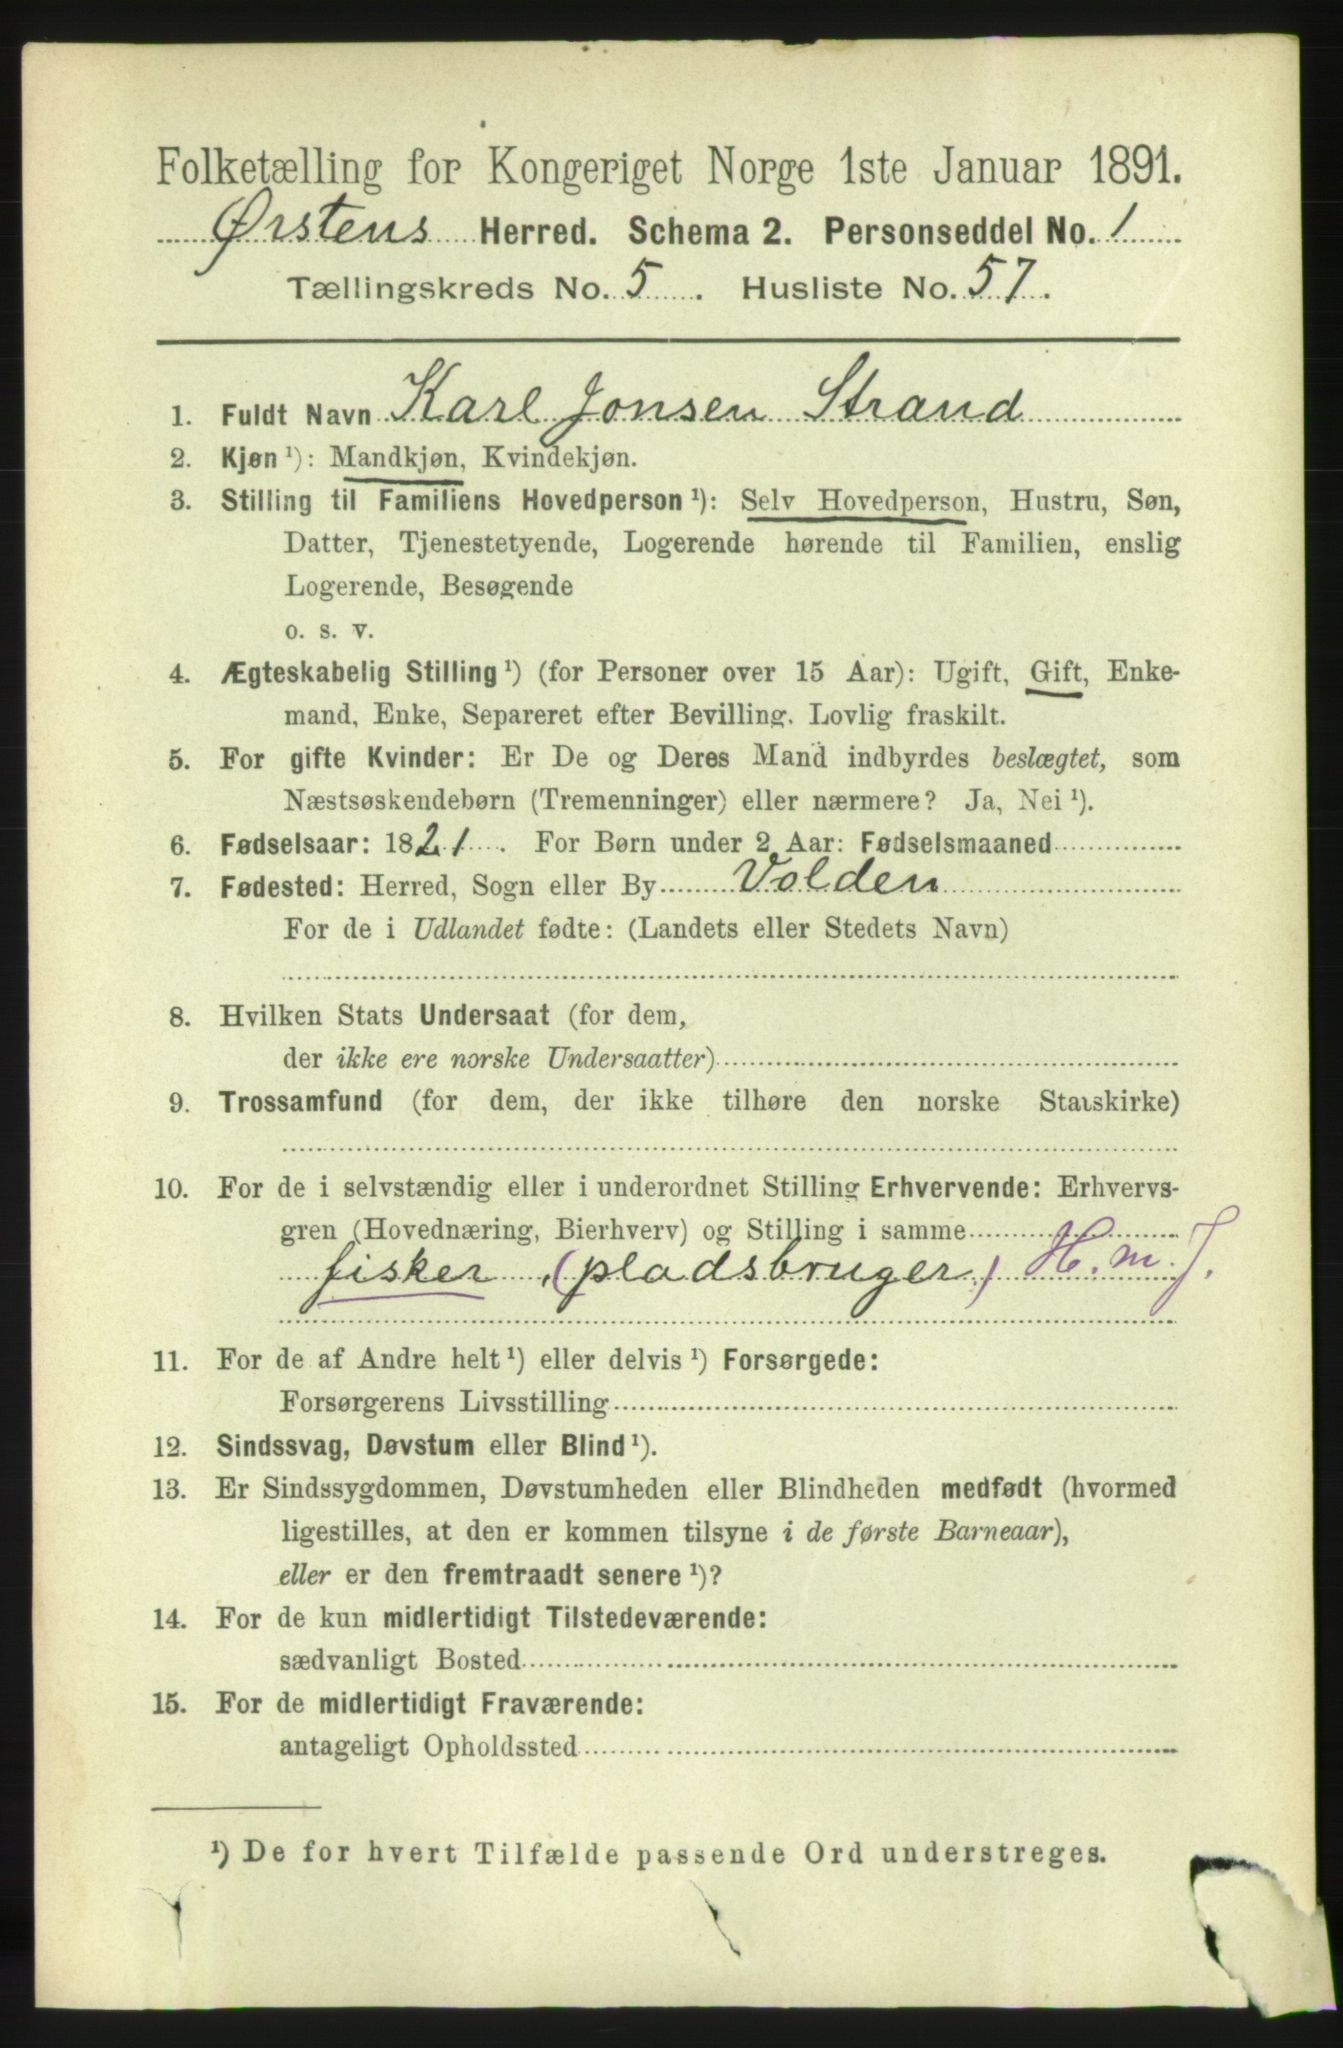 Folketælling for Kongeriget Norge 1ste Januar 1891.
Ørstens Herred. Schema 2. Personseddel No. 1
Tællingskreds No. 5. Husliste No. 57.
1. Fuldt Navn Karl Jonsen Strand
2. Kjøn ¹): Mandkjøn, Kvindekjøn.
3. Stilling til Familiens Hovedperson ¹): Selv Hovedperson, Hustru, Søn,
Datter, Tjenestetyende, Logerende hørende til Familien, enslig
Logerende, Besøgende
o. s. v.
4. Ægteskabelig Stilling ¹) (for Personer over 15 Aar): Ugift, Gift, Enke-
mand, Enke, Separeret efter Bevilling. Lovlig fraskilt.
5. For gifte Kvinder: Er De og Deres Mand indbyrdes beslægtet, som
Næstsøskendebørn (Tremenninger) eller nærmere? Ja, Nei ¹).
6. Fødselsaar: 1821. For Børn under 2 Aar: Fødselsmaaned
7. Fødested: Herred, Sogn eller By Volden
For de i Udlandet fødte: (Landets eller Stedets Navn)
8. Hvilken Stats Undersaat (for dem,
der ikke ere norske Undersaatter)
9. Trossamfund (for dem, der ikke tilhøre den norske Statskirke)
10. For de i selvstændig eller i underordnet Stilling Erhvervende: Erhvervs-
gren (Hovednæring, Bierhverv) og Stilling i samme
fisker, (pladsbruger) H. m. J.
11. For de af Andre helt ¹) eller delvis ¹) Forsørgede:
Forsørgerens Livsstilling
12. Sindssvag, Døvstum eller Blind ¹).
13. Er Sindssygdommen, Døvstumheden eller Blindheden medfødt (hvormed
ligestilles, at den er kommen tilsyne i de første Barneaar),
eller er den fremtraadt senere ¹)?
14. For de kun midlertidigt Tilstedeværende:
sædvanligt Bosted
15. For de midlertidigt Fraværende:
antageligt Opholdssted
¹) De for hvert Tilfælde passende Ord understreges.